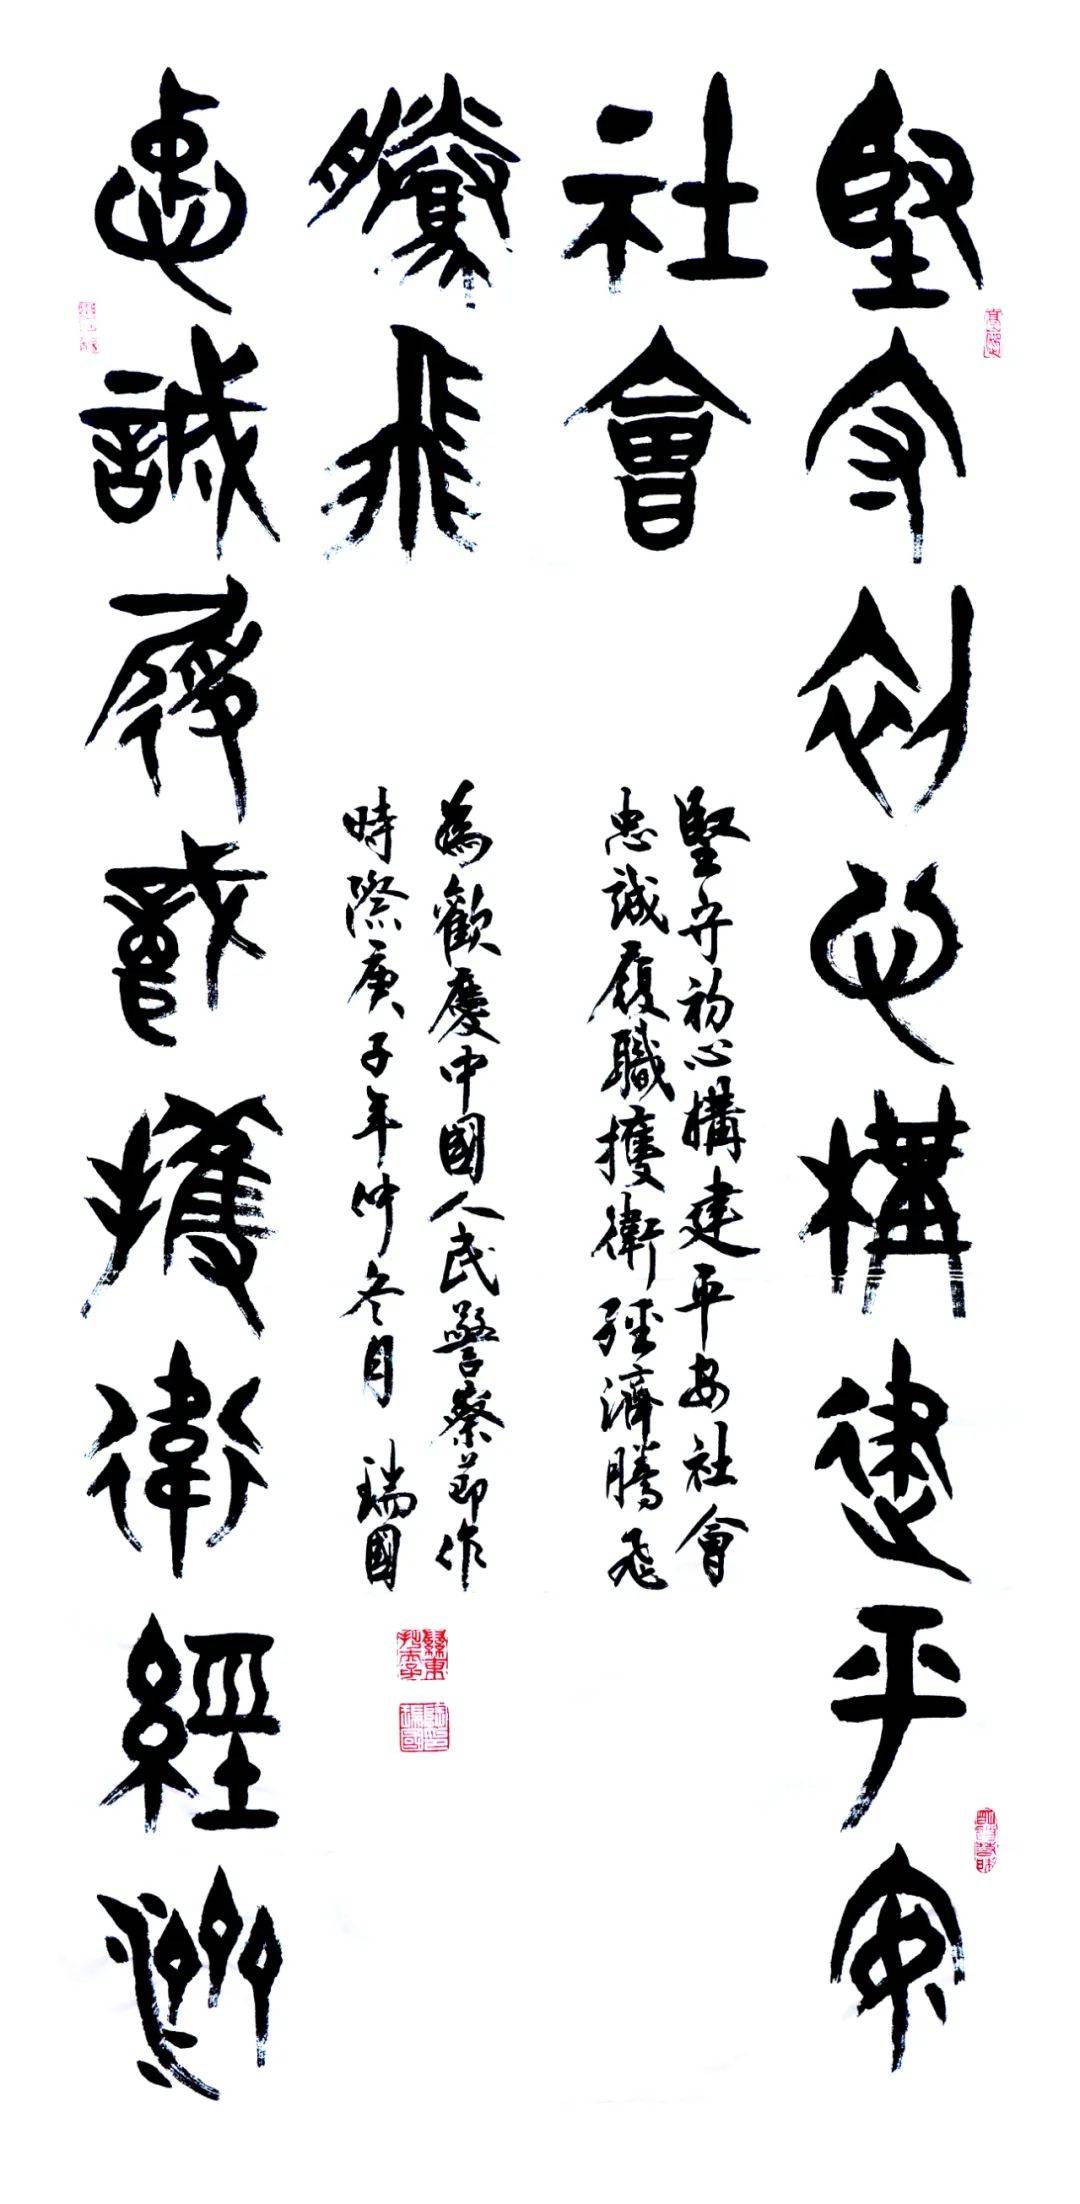 堅守初心構建平安
社會
忠誠履職擭衛經濟
騰飛
堅守初心構建平安社會
忠誠履職擭衛經濟騰飛
為歡慶中國人民警察節作
時際庚子年仲冬月 瑞國